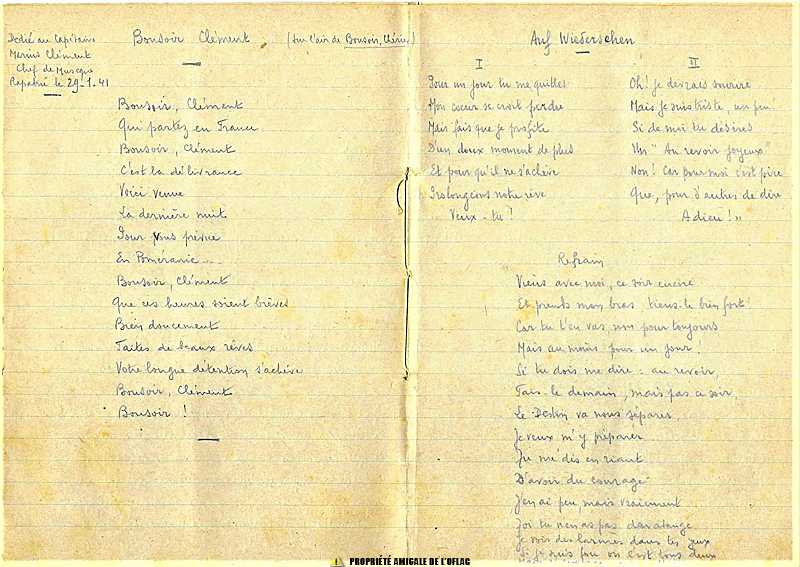 Dédié au Capitaine
Marius Clément
Chef de Musique
Rapatrié le 29-1-41
Bonsoir Clément (Sur l'air de Bonsoir, Chérie)
Bonsoir, Clément
Qui partez en France
Bonsoir, Clément
C'est la délivrance
Voici venue
La dernière nuit
Pour vous prévue
En Poméranie...
Bonsoir, Clément
Que ces heures soient brèves
Bien doucement
Faites de beaux rêves
Votre longue détention s'achève
Bonsoir, Clément
Bonsoir !
Auf Wiedersehen
I
Pour un jour tu me quittes
Mon coeur se croit perdre
Mais fais que je profite
D'un doux moment de plus
Et pour qu'il ne s'achève
Prolongeons notre rêve
Veux-tu ?
II
Oh! je devrais sourire
Mais je suis triste, un peu!
Si de moi tu désires
Un "Au revoir joyeux"
Non! Car pour moi c'est pire
Que, pour d'autres de dire
Adieu! "
Refrain
Viens avec moi, ce soir encore
Et prends mon bras, tiens-le bien fort
Car tu t'en vas, non pour toujours
Mais au moins pour un jour.
Si tu dois me dire : au revoir,
Fais-le demain, mais pas ce soir,
Le Destin va nous séparer,
Je veux m'y préparer
Tu me dis en riant
D'avoir du courage
J'en ai peu mais vraiment
Toi tu n'en as pas davantage
Je vois des larmes dans tes yeux
Si je suis fou on l'est tous deux
PROPRIÉTÉ AMIGALE DE L'OFLAG